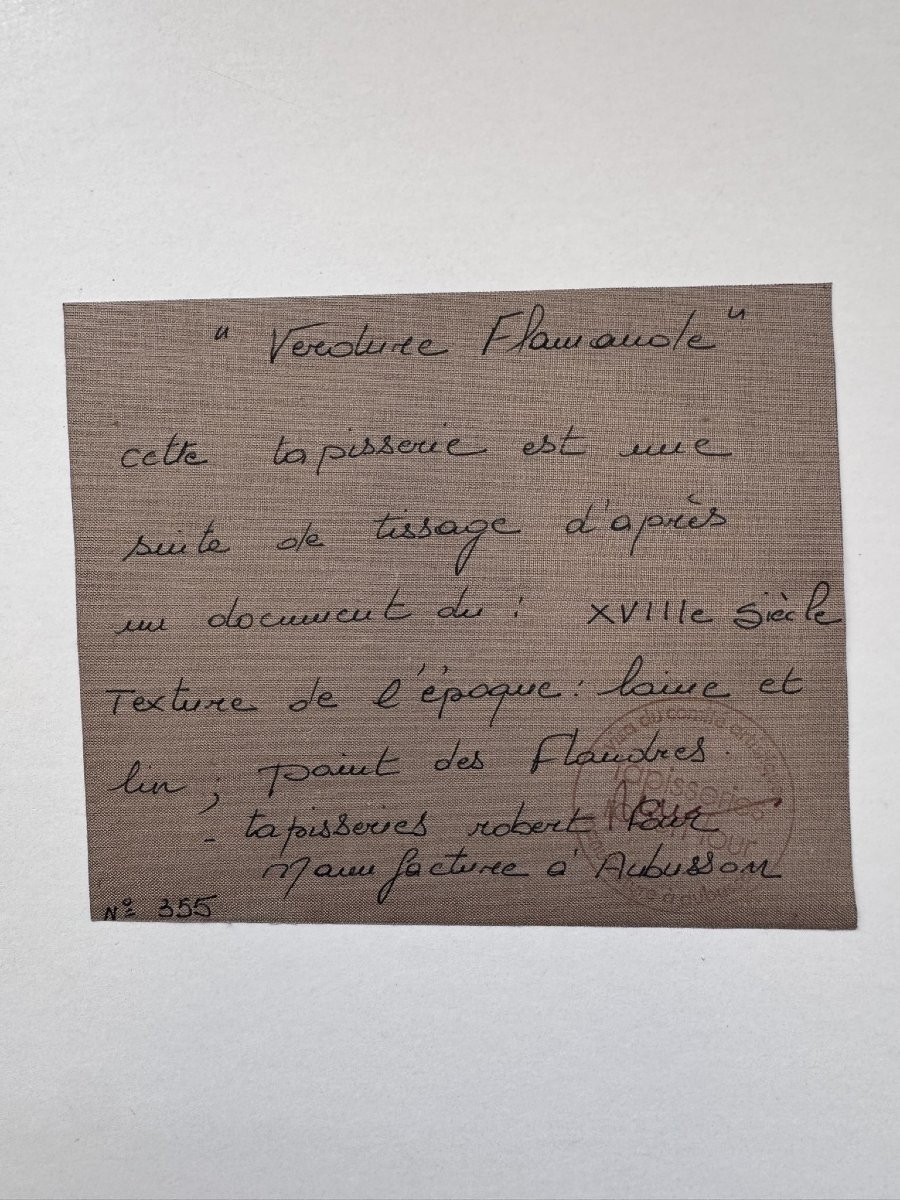 " Verdure Flamande "
cette tapisserie est une
suite de tissage d'après
un document du : XVIIIe siècle
Texture de l'époque : laine et
lin ; point des Flandres.
- tapisseries robert four
Manufacture à Aubusson
N° 355
du comité artistique
tapisseries
four
à aubusson